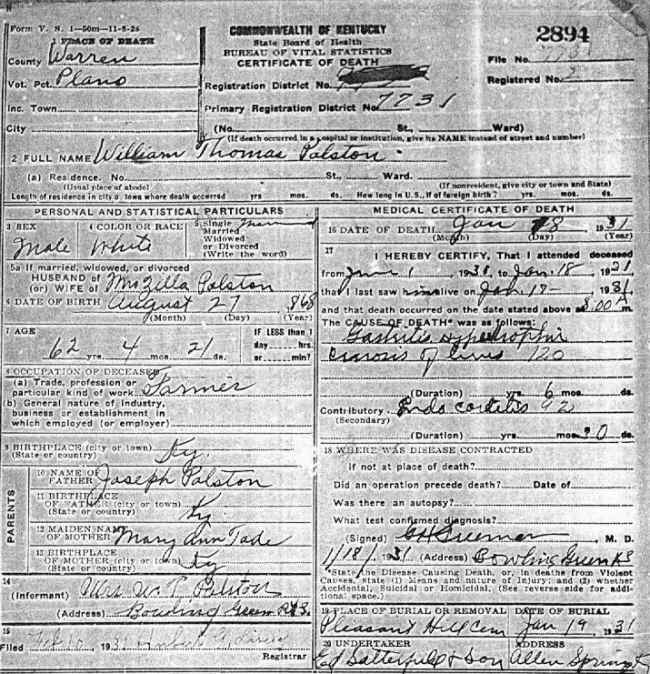 Form V. S. 1-50m-11-8-26
1 PLACE OF DEATH
County Warren
Vot. Pct. Plano
Inc. Town
City
COMMONWEALTH OF KENTUCKY
State Board of Health
BUREAU OF VITAL STATISTICS
CERTIFICATE OF DEATH
Registration District No.
Primary Registration District No. 7731
2894
File No.
Registered No.
(No. St., Ward)
(If death occurred in a hospital or institution, give its NAME instead of street and number)
2 FULL NAME William Thomas Polston
(a) Residence. No. St., Ward.
(Usual place of abode) (If nonresident, give city or town and State)
Length of residence in city or town where death occurred yrs. mos. ds. How long in U.S., if of foreign birth? yrs. mos. ds.
PERSONAL AND STATISTICAL PARTICULARS
3 SEX Male
4 COLOR OR RACE White
5 Single
Married
Widowed
or Divorced
(Write the word)
5a If married, widowed, or divorced
HUSBAND of
(or) WIFE of Mozilla Polston
6 DATE OF BIRTH August 27 1868
(Month) (Day) (Year)
7 AGE
62 yrs. 4 mos. 21 ds.
IF LESS than 1
day hrs.
or min.?
8 OCCUPATION OF DECEASED
(a) Trade, profession or
particular kind of work Farmer
b) General nature of industry,
business or establishment in
which employed (or employer)
9 BIRTHPLACE (city or town)
(State or country) Ky.
PARENTS
10 NAME OF
FATHER Joseph Polston
11 BIRTHPLACE
OF FATHER (city or town)
(State or country) Ky
12 MAIDEN NAME
OF MOTHER Mary Ann Tade
13 BIRTHPLACE
OF MOTHER (city or town)
(State or country) Ky
14
(Informant) Mrs W. T. Polston
(Address) Bowling Green R#3
15
Filed Registrar
MEDICAL CERTIFICATE OF DEATH
16 DATE OF DEATH Jan 18 1931
(Month) (Day) (Year)
17
I HEREBY CERTIFY, That I attended deceased
from June 1 1930, to Jan. 18 1931
that I last saw him alive on Jan. 1931
and that death occurred on the date stated above at 8:00 A m.
The CAUSE OF DEATH* was as follows:
Gastritis Hypertrophic
of 120
(Duration) yrs. 6 mos. ds.
Contributory Endo carditis 92
(Secondary)
(Duration) yrs. mos. ds.
18 WHERE WAS DISEASE CONTRACTED
if not at place of death?
Did an operation precede death? Date of
Was there an autopsy?
What test confirmed diagnosis?
(Signed) M. D.
1/18/1931 (Address) Bowling Green
*State the Disease Causing Death, or, in deaths from Violent
Causes, state (1) Means and nature of Injury; and (2) whether
Accidental, Suicidal or Homicidal. (See reverse side for addi-
tional space.)
19 PLACE OF BURIAL OR REMOVAL
Pleasant Hill Cem
DATE OF BURIAL
Jan 19 1931
20 UNDERTAKER
Satterfield & Son
ADDRESS
Allen Springs